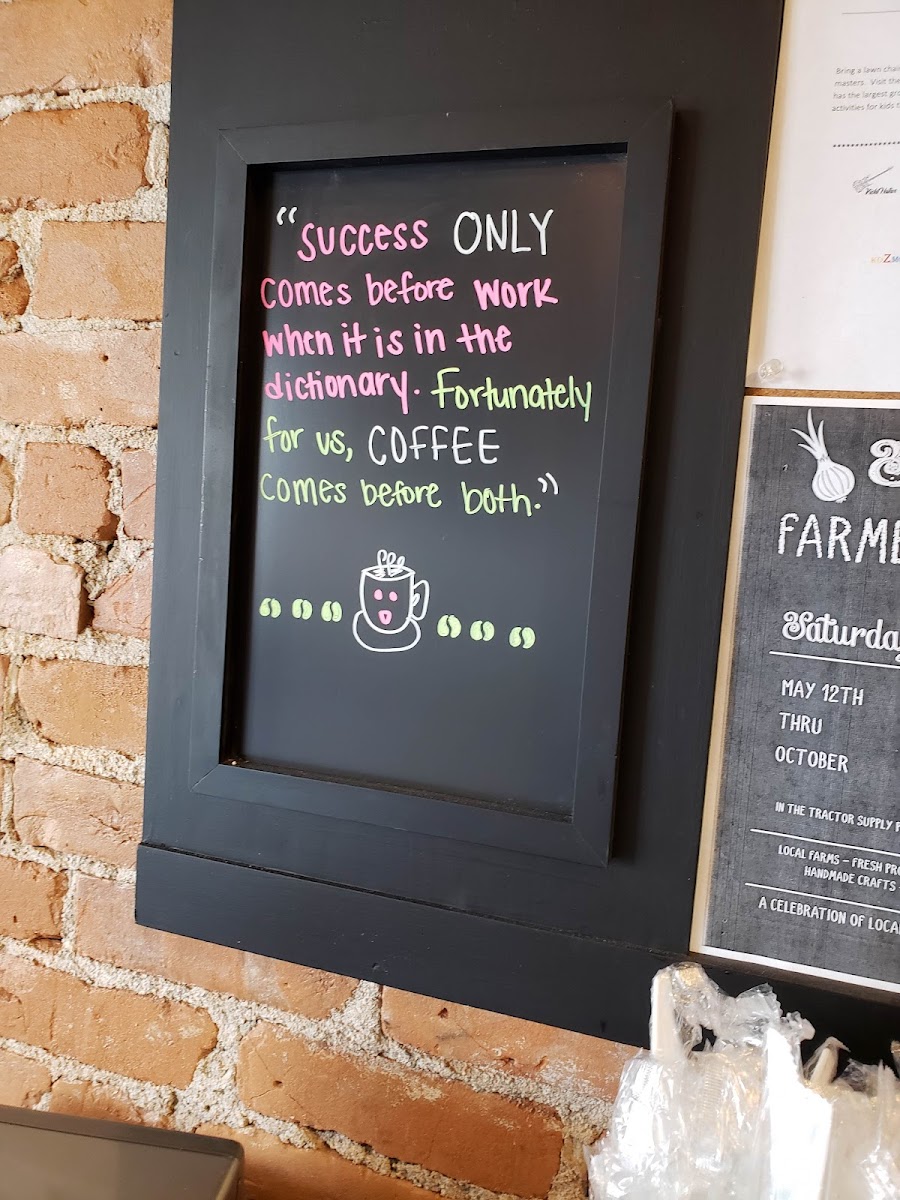 “Success ONLY
comes before work
when it is in the
dictionary. Fortunately
for us, COFFEE
comes before both.”
Bring a lawn
masters. Visit
has the largest
activities for kids
Saturday
MAY 12TH
THRU
OCTOBER
IN THE TRACTOR SUPPLY
LOCAL FARMS – FRESH
HANDMADE CRAFTS
A CELEBRATION OF